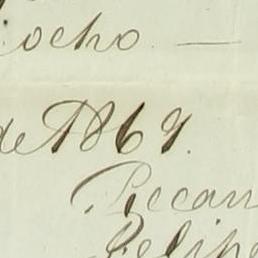 ocho —
de 1867.
Pecan
Felipe